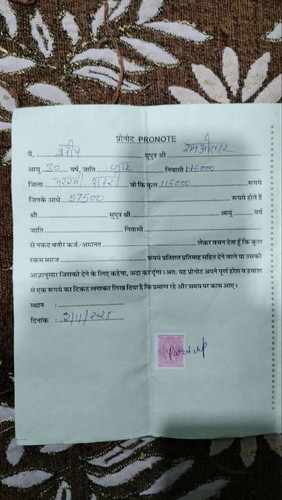 प्रोनोट PRONOTE
मैं, सुपुत्र श्री
आयु 30 वर्ष, जाति निवासी 115000
जिला जो कि कुल 115000 रूपये
जिनके आधे 57500 रूपये होते हैं
श्री सुपुत्र श्री आयु वर्ष
जाति निवासी
से नकद बतौर कर्ज/अमानत लेकर वचन देता हूँ कि कुल
रकम ब्याज रूपये प्रतिशत प्रतिमाह सहित देने वाले या उसकी
आज्ञानुसार जिसको देने के लिए कहेगा, अदा कर दूंगा। अतः यह प्रोनोट अपने पूर्ण होश व हवास
से एक रूपये का टिकट लगाकर लिख दिया है कि प्रमाण रहे और समय पर काम आए।
स्थान :
दिनांक : 2/11/2025